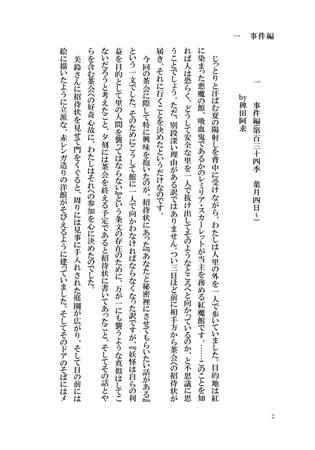 一　事件編
一　事件編(第百三十四季　葉月四日～)
by稗田阿求
じっとりと汗ばむ夏の陽射しを背中に受けながら、わたしは人里の外を一人で歩いていました。目的地は紅
に染まった悪魔の館、吸血鬼であるかのレミリア・スカーレットが当主を務める紅魔館です。……このことを知
れば人は恐らく、どうして安全な里を一人で抜け出してそのようなところへと向かっているのか、と不思議に思
うことでしょう。ただ、別段深い理由がある訳ではありません。つい三日ほど前に相手方から茶会への招待状が
届き、それに行くことを決めたというだけなのです。
今回の茶会に際して特に興味を抱いたのが、招待状にあった『あなたと秘密裡にさせてもらいたい話がある』
という一文でした。そのためにこうして館に一人で向かわなければならなくなった訳ですが、『妖怪は自らの利
益を目的として里の人間を襲ってはならない』という条文の存在のために、万が一にも襲うような真似はしてこ
ないだろうと考えたこと、夕刻には茶会を終える予定であると招待状に書いてあったこと、そしてその話とや
らを含む茶会への好奇心故に、わたしはそれへの参加を心に決めたのでした。
美鈴さんに招待状を見せて門をくぐると、周りには見事に手入れされた庭園が広がり、そして目の前には
絵に描いたように立派な、赤レンガ造りの洋館がそびえるように建っていました。そしてそのドアのそばにはメ
2